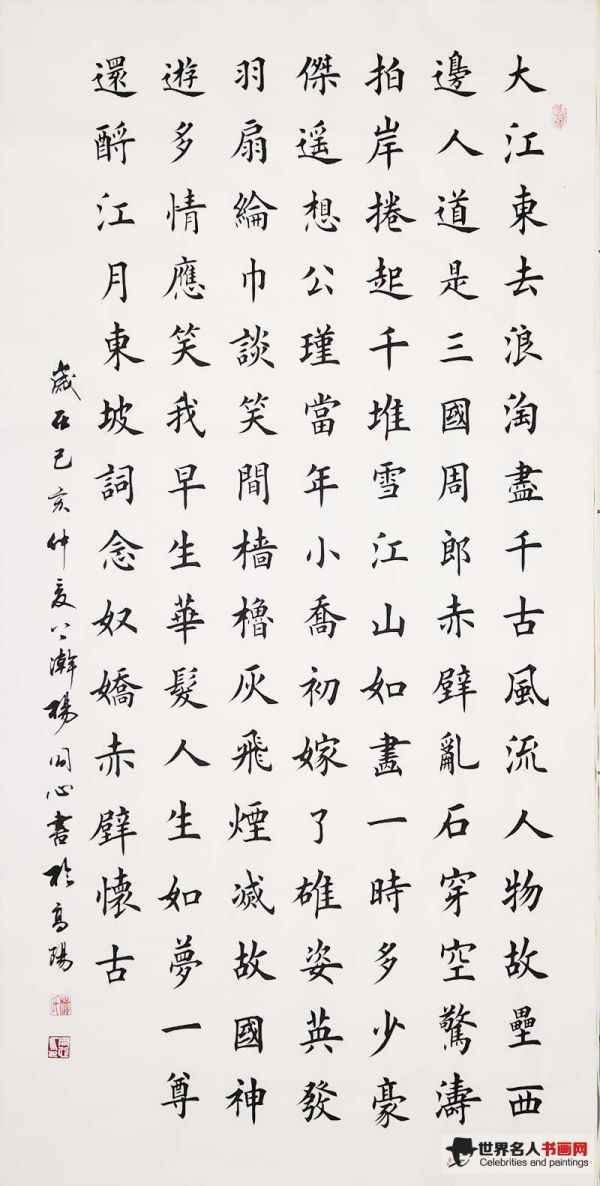 大江東去浪淘盡千古風流人物故壘西
邊人道是三國周郎赤壁亂石穿空驚濤
拍岸捲起千堆雪江山如畫一時多少豪
傑遥想公瑾當年小喬初嫁了雄姿英發
羽扇綸巾談笑間檣櫓灰飛煙滅故國神
遊多情應笑我早生華髮人生如夢一尊
還酹江月東坡詞念奴嬌赤壁懷古
歲在己亥仲夏瀚楊同心書於高陽
世界名人书画网
Celebrities and paintings